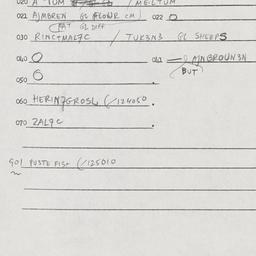 020 A TOM / MELTUM
021 AJMBREN GL FLOWR CM) 022 O
PAT GL DIFF
030 RINCTMAL7C / TUK3N3 GL SHEEPS
040 O 041 — AJNBROUN3N
BUT
050 O
060 HERIN7GROSL (/124050 .
070 ZAL9C .
901 PUSTE FISF (/125010